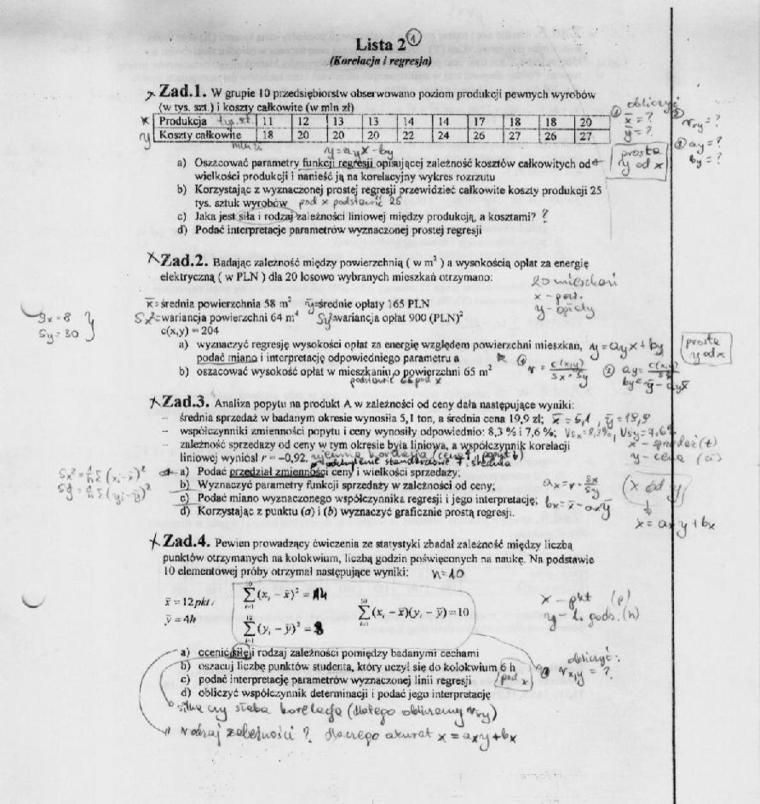 Lista 2 ①
(Korelacja i regresja)
Zad.1. W grupie 10 przedsiębiorstw obserwowano poziom produkcji pewnych wyrobów
(w tys. szt.) i koszty całkowite (w mln zł)
x Produkcja tys. szt. 11 12 13 13 14 14 17 18 18 20
y Koszty całkowite 18 20 20 20 22 24 26 27 26 27
obliczyć
x̄ = ?
ȳ = ?
r xy = ?
ay = ?
by = ?
prosta
y od x
a) Oszacować parametry funkcji regresji opisującej zależność kosztów całkowitych od
wielkości produkcji i nanieść ją na korelacyjny wykres rozrzutu
b) Korzystając z wyznaczonej prostej regresji przewidzieć całkowite koszty produkcji 25
tys. sztuk wyrobów pod x podstawić 25
c) Jaka jest siła i rodzaj zależności liniowej między produkcją, a kosztami? ?
d) Podać interpretacje parametrów wyznaczonej prostej regresji
Zad.2. Badając zależność między powierzchnią ( w m² ) a wysokością opłat za energię
elektryczną ( w PLN ) dla 20 losowo wybranych mieszkań otrzymano:
20 mieszkań
x - pow.
y - opłaty
x̄ = średnia powierzchnia 58 m² ȳ = średnie opłaty 165 PLN
Sx² = wariancja powierzchni 64 m⁴ Sy² wariancja opłat 900 (PLN)²
Sx = 8
Sy = 30
c(x,y) = 204
a) wyznaczyć regresję wysokości opłat za energię względem powierzchni mieszkan, y = ay x + by
podać miano i interpretację odpowiedniego parametru a
prosta
y od x
b) oszacować wysokość opłat w mieszkaniu o powierzchni 65 m²
r = c(x,y) / Sx · Sy
by = ȳ - ay x̄
Zad.3. Analiza popytu na produkt A w zależności od ceny dała następujące wyniki:
- średnia sprzedaż w badanym okresie wynosiła 5,1 ton, a średnia cena 19,9 zł; x̄ = 5,1
- współczynniki zmienności popytu i ceny wynosiły odpowiednio: 8,3 % i 7,6 %;
- zależność sprzedaży od ceny w tym okresie była liniowa, a współczynnik korelacji
liniowej wyniósł r = -0,92.
y - cena
Sx² = 1/n Σ (xi - x̄)²
Sy² = 1/n Σ (yi - ȳ)²
a) Podać przedział zmienności ceny i wielkości sprzedaży;
b) Wyznaczyć parametry funkcji sprzedaży w zależności od ceny; ax = r · Sx / Sy
c) Podać miano wyznaczonego współczynnika regresji i jego interpretację; bx = x̄ - ax ȳ
d) Korzystając z punktu (a) i (b) wyznaczyć graficznie prostą regresji.
x od y
x = ax y + bx
Zad.4. Pewien prowadzący ćwiczenia ze statystyki zbadał zależność między liczbą
punktów otrzymanych na kolokwium, liczbą godzin poświęconych na naukę. Na podstawie
10 elementowej próby otrzymał następujące wyniki: n = 10
x̄ = 12pkt
ȳ = 4h
Σ(xi - x̄)² = 14
Σ(yi - ȳ)² = 8
Σ(xi - x̄)(yi - ȳ) = 10
x - pkt (p)
y - l. godz. (h)
a) ocenić siłę i rodzaj zależności pomiędzy badanymi cechami
b) oszacuj liczbę punktów studenta, który uczył się do kolokwium 6 h
c) podać interpretację parametrów wyznaczonej linii regresji
d) obliczyć współczynnik determinacji i podać jego interpretację
obliczyć:
r x,y = ?
silna czy słaba korelacja (dlatego obliczamy r xy)
rodzaj zależności ? dlaczego akurat x = ax y + bx